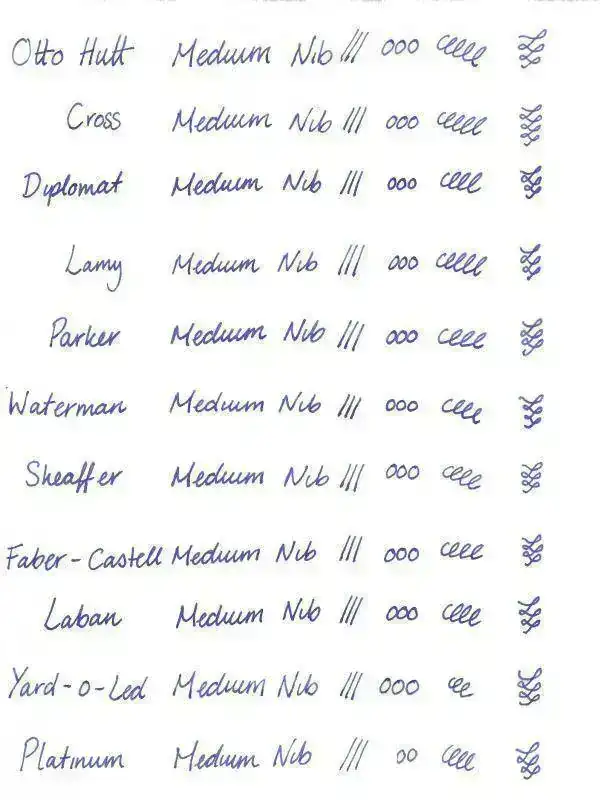 Otto Hutt Medium Nib /// ooo eeeee
Cross Medium Nib /// ooo eeeee
Diplomat Medium Nib /// ooo eeee
Lamy Medium Nib /// ooo eeeee
Parker Medium Nib /// ooo eeee
Waterman Medium Nib /// ooo eeee
Sheaffer Medium Nib /// ooo eeee
Faber-Castell Medium Nib /// ooo eeee
Laban Medium Nib /// ooo eeee
Yard-o-Led Medium Nib /// ooo ee
Platinum Medium Nib /// oo eeee